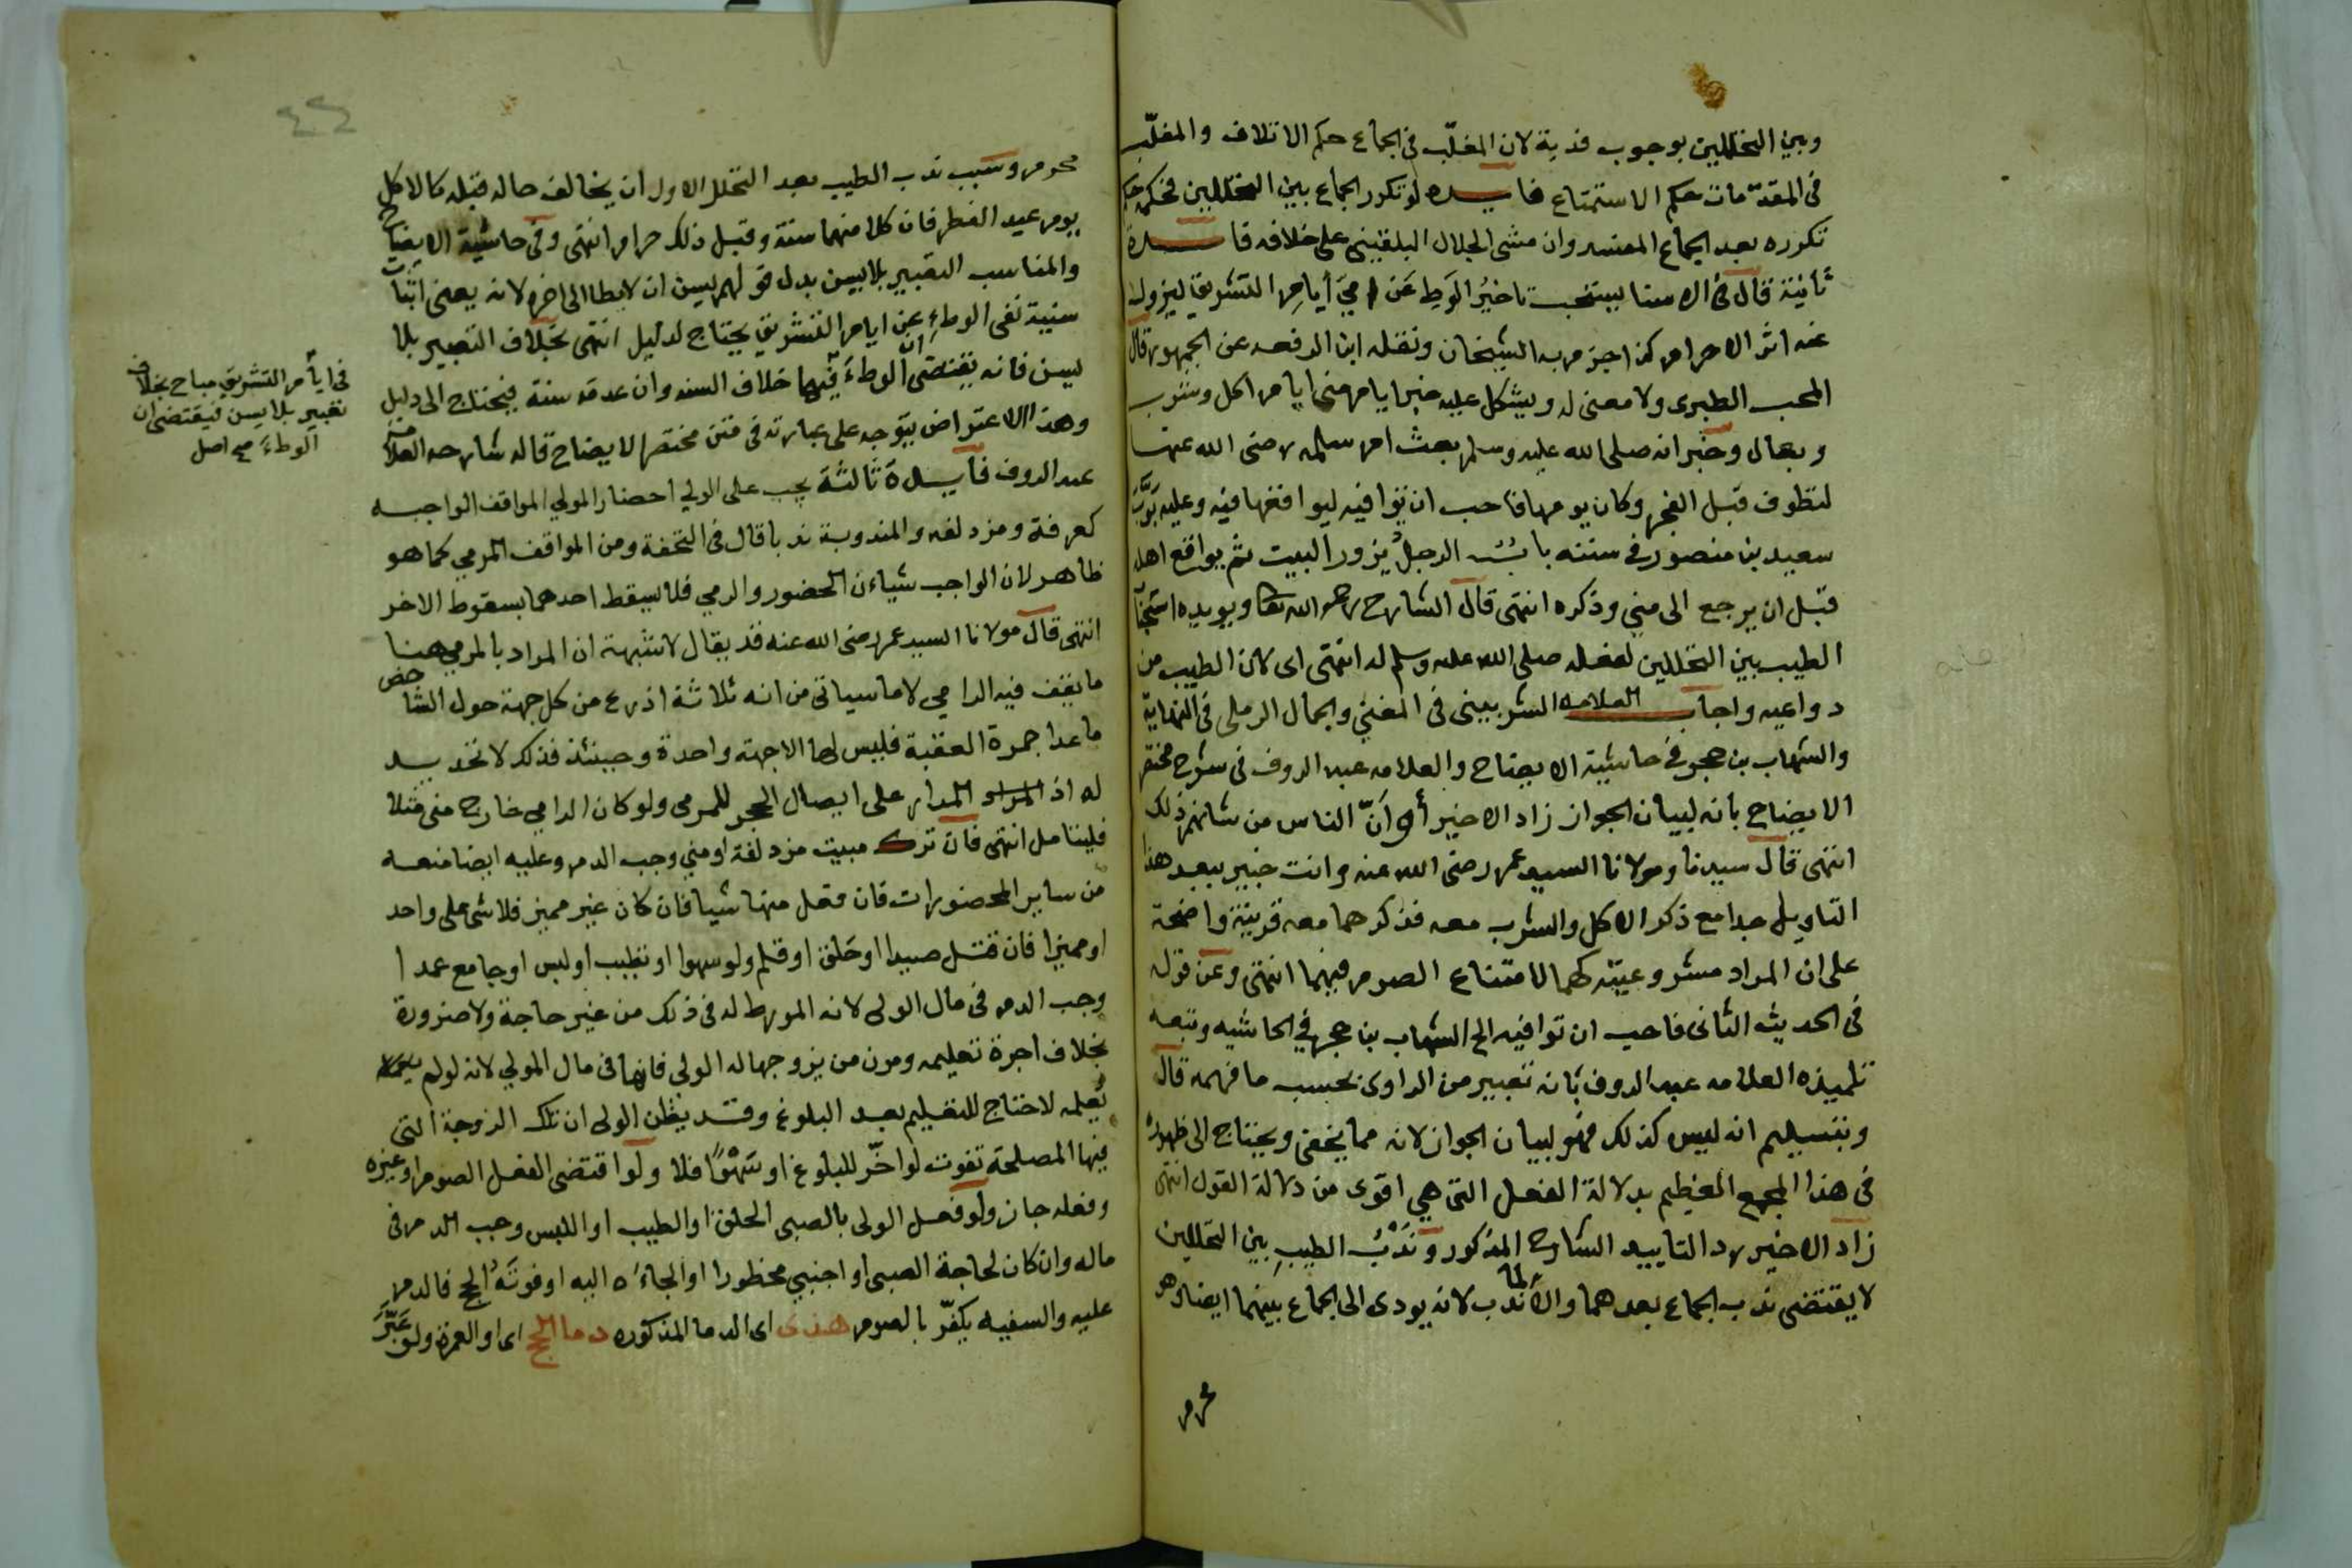 وبين التحللين بوجوب فدية لان المغلّب في الجماع حكم الاتلاف والمغلّب
في المقدّمات حكم الاستمتاع فايده لو تكرر الجماع بين التحللين فحكمه حكم
تكرره بعد الجماع المفسد وان مشى الجلال البلقيني على خلافه فايدة
ثانية قال في الاسنا يستحب تاخيرُ الوَطِ عَن رميَ أيامِ التشريق ليزول
عنه اثر الاحرام كذا جزم به الشيخان ونقله ابن الرفعه عن الجمهور قال
المحب الطبرى ولا معنى له ويشكل عليه خبر ايام منى ايام اكل وشرب
وبعال وخبر انه صلى الله عليه وسلم بعث ام سلمه رضى الله عنها
لتطوف قبل الفجر وكان يومها فاحب ان توافيه ليوافعها فيه وعليه بَوَّبَ
سعيد بن منصور في سننه بابُ الرجلُ يزور البيت ثم يواقع اهله
قبل ان يرجع الى مني وذكره انتهى قال الشارح رحمه الله تعا ويويده استحبا
الطيب بين التحللين لفعله صلى الله عليه وسلم له انتهى اى لان الطيب من
دواعيه واجاب العلامه الشربينى في المغني والجمال الرملى في النهاية
والشهاب بن حجر في حاشية الايضاح والعلامه عبد الروف في شرح مختصر
الايضاح بانه لبيان الجواز زاد الاخير أو اَنّ الناس من شانهم ذلك
انتهى قال سيدنا ومولانا السيد عمر رضى الله عنه وانت خبير ببعد هذا
التاويل جدا مع ذكر الاكل والشرب معه فذكرهما معه قرينة واضحة
على ان المراد مشروعيته كهما لامتناع الصوم فيهما انتهى وعن قوله
في الحديث الثانى فاحب ان توافيه الح الشهاب بن حجر في الحاشيه وتبعه
تلميذه العلامه عبد الروف بانه تعبير من الراوى بحسب ما فهمه قال
وبتسليم انه ليس كذلك فهو لبيان الجواز لانه مما يخفى ويحتاج الى ظهوره
في هذا المجمع العظيم بدلالة الفعل التى هي اقوى من دلالة القول انتهى
زاد الاخير رد التاييد الشارح المذكور ونَدْبُ الطيبِ بين التحللين
لا يقتضى ندب الجماع بعدهما والا لما ندب لانه يودى الى الجماع بينهما ايضا وهو
محرم
محرم وسبب ندب الطيب بعد التحلل الاول ان يخالف حاله قبله كالاكل
يوم عيد الفطر فان كلا منهما سنة وقبل ذلك حرام انتهى وفي حاشية الايضاح
والمناسب التعبير بلا يسن بدل قولهم يسن ان لا يطا الى اخره لانه يعنى اثبات
سنية نفى الوطءِ عن ايام التشريق يحتاج لدليل انتهى بخلاف التعبير بلا
يسن فانه يقتضى ان الوطءَ فيها خلاف السنه وان عدمه سنة فيحتاج الى دليل
وهذا الاعتراض يتوجه على عبارته في متن مختصر الايضاح قاله شارحه العلامه
عبد الروف فايدة ثالثة يجب على الولي احضار المولي المواقف الواجبه
كعرفة ومزدلفه والمندوبة ندبا قال في التحفة ومن المواقف المرمي كما هو
ظاهر لان الواجب شياءن الحضور والرمي فلا يسقط احدهما بسقوط الاخر
انتهى قال مولانا السيد عمر رضى الله عنه قد يقال لا شبهة ان المراد بالمرمي هنا
ما يقف فيه الرامي لا ما سياتى من انه ثلاثة اذرع من كل جهة حول الشاخص
ما عدا جمرة العقبة فليس لها الا جهة واحدة وحينئذ فذلك لا تحديد
له اذ المدار على ايصال الحجر للمرمى ولو كان الرامي خارج منى مثلا
فليتامل انتهى فان ترك مبيت مزدلفة او مني وجب الدم وعليه ايضا منعه
من ساير المحضورات فان فعل منها شيا فان كان غير مميز فلا شى على واحد
او مميزا فان قتل صيدا او حَلق او قلم ولو سهوا او تطيب او لبس او جامع عمدا
وجب الدم في مال الولى لانه المورط له في ذلك من غير حاجة ولا ضرورة
بخلاف اجرة تعليمه ومون من يزوجها له الولي فانها في مال المولي لانه لو لم
يُعلمه لاحتاج للتعليم بعد البلوغ وقد يظن الولى ان تلك الزوجة التى
فيها المصلحة تفوت لو اخّر للبلوغ او سَهْوًا فلا ولو اقتضى الفعل الصوم او غيره
وفعله جاز ولو فعل الولى بالصبى الحلق او الطيب او اللبس وجب الدم في
ماله وان كان لحاجة الصبى او اجنبي محظورا او الجاءه اليه او فوتَهُ الحج فالدم
عليه والسفيه يكفّر بالصوم هذى اى الدما المذكوره دما الحج اى او العمرة ولو عَبَّرَ
في ايام التشريق مباح بخلاف
تعبير بلا يسن فيقتضى ان
الوطءَ صح اصل
٤٢